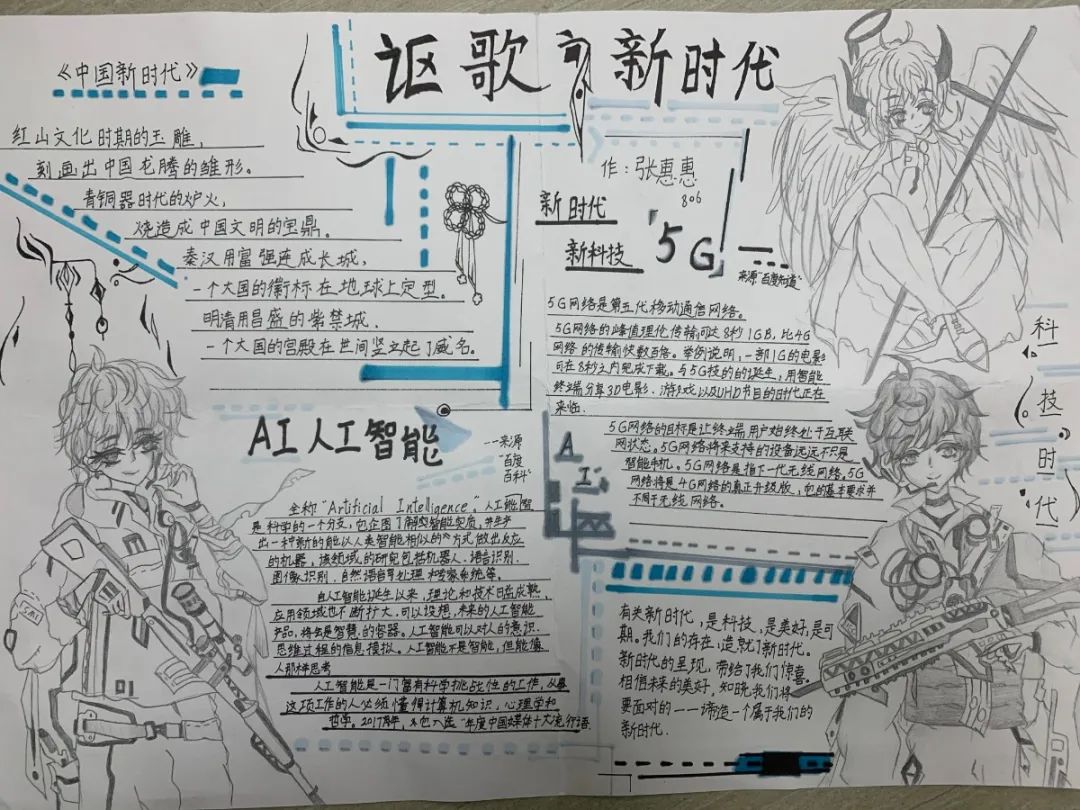 讴歌新时代
作：张惠惠
806
《中国新时代》
红山文化时期的玉雕，
刻画出中国龙腾的雏形。
青铜器时代的炉火，
烧造成中国文明的宝鼎。
秦汉用富强连成长城，
一个大国的徽标在地球上定型。
明清用昌盛的紫禁城．
一个大国的宫殿在世间竖立起了威名。
新时代
新科技
5G
来源"百度知道"
5G网络是第五代移动通信网络。
5G网络的峰值理化传输可达8秒1GB，比4G
网络的传输快数百倍。举例说明，一部1G的电影
可在8秒之内完成下载。与5G技的的诞生，用智能
终端分享3D电影．游戏以及UHD节目的时代正在
来临．
5G网络的目标是让终端用户始终处于互联
网状态。5G网络将来支持的设备远远不只是
智能手机。5G网络是指下一代无线网络。5G
网络将是4G网络的真正升级版，它的基本要求并
不同于无线网络．
科
技
时
代
AI人工智能
一一来源
"百度
百科"
全称"Artificial Intelligence"．人工智能
是科学的一个分支，它企图了解智能实质，并生产
出一种新的能以人类智能相似的方式做出反应
的机器，该领域的研究包括机器人．语言识别．
图像识别，自然语言处理和专家系统等。
自人工智能诞生以来，理论和技术日益成熟．
应用领域也不断扩大，可以设想，未来的人工智能
产品，将会是智慧的容器。人工智能可以对人的意识．
思维过程的信息模拟。人工智能不是智能，但能像
人那样思考
人工智能是一门富有科学挑战性的工作，从事
这项工作的人必须懂得计算机知识，心理学和
哲学，2017年，入选"年度中国媒体十大流行语．
AI
有关新时代，是科技，是美好，是可
期。我们的存在，造就了新时代。
新时代的呈现，带给了我们惊喜。
相信未来的美好，知晓我们将
要面对的一一缔造一个属于我们的
新时代．